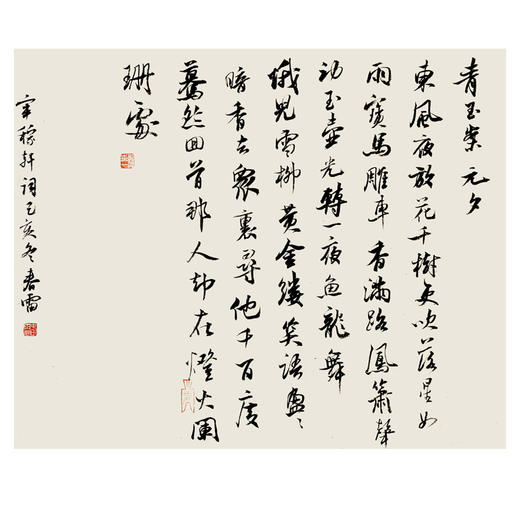 青玉案 元夕
東風夜放花千樹更吹落星如
雨寶馬雕車香滿路鳳簫聲
動玉壺光轉一夜魚龍舞
蛾兒雪柳黃金縷笑語盈〻
暗香去衆裏尋他千百度
驀然回首那人却在燈火闌
珊處
辛稼軒詞己亥冬春雷